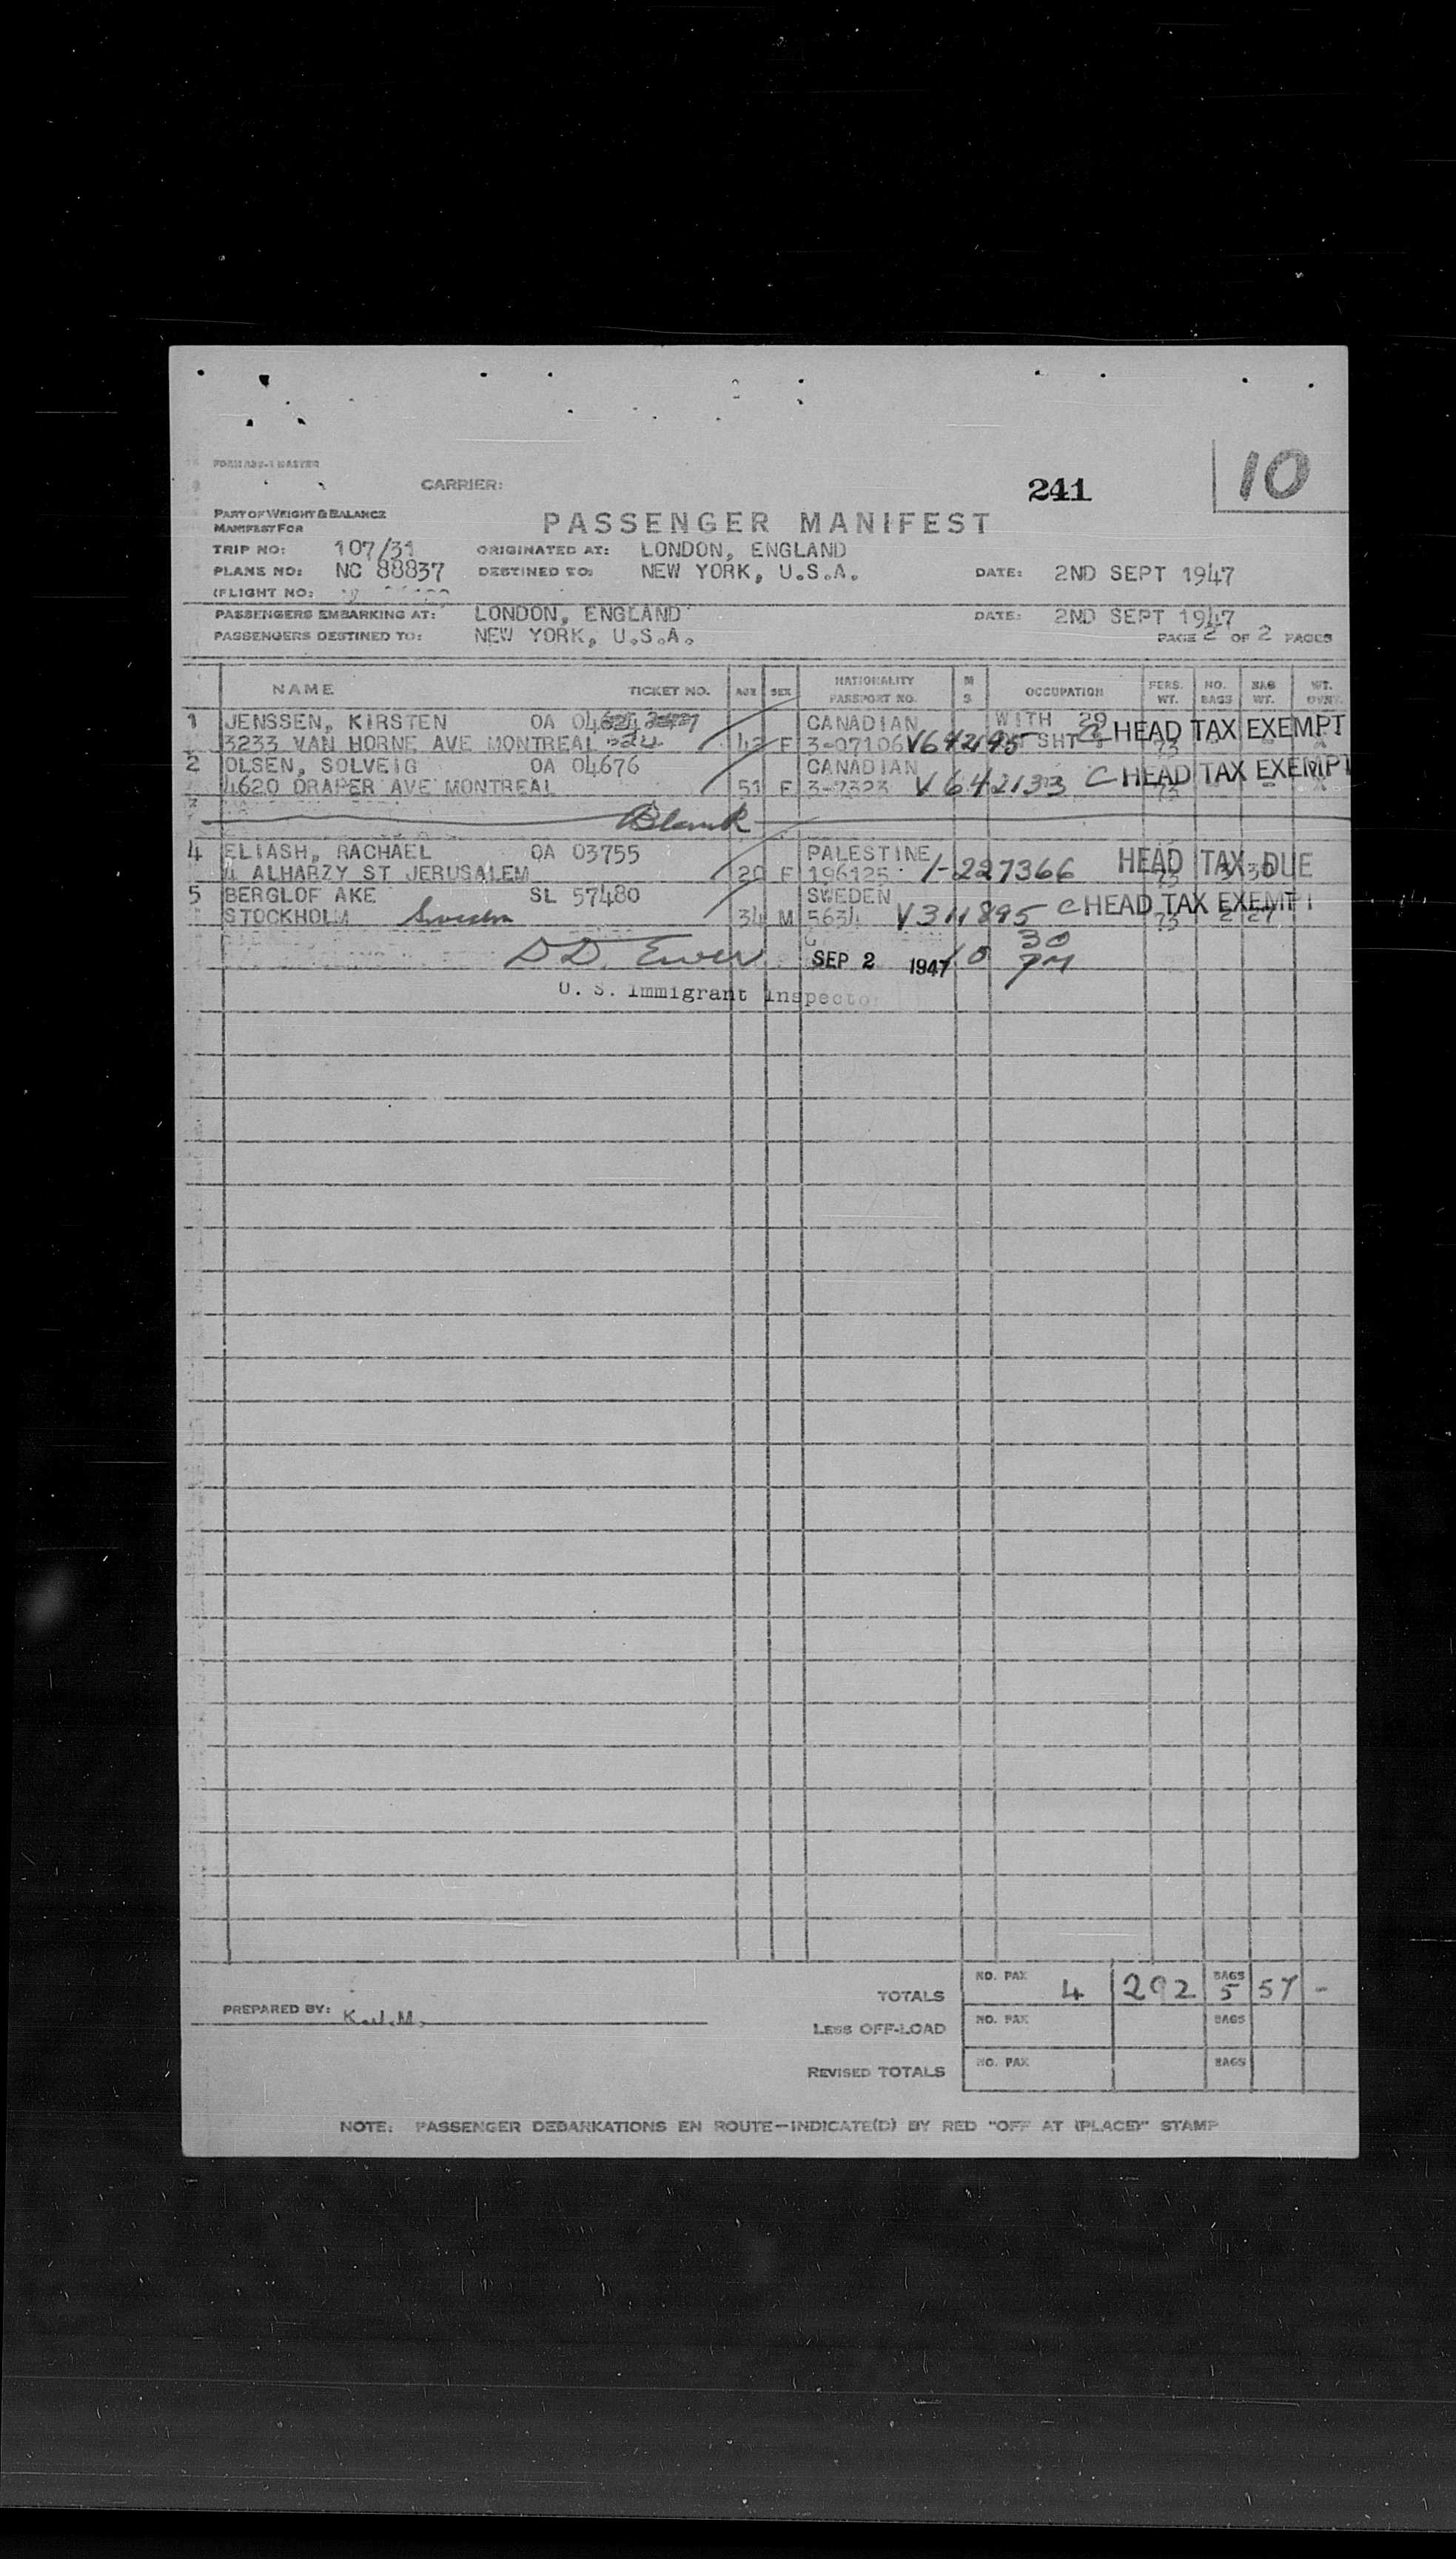 CARRIER:
241
10
PART OF WEIGHT & BALANCE
MANIFEST FOR
PASSENGER MANIFEST
TRIP NO: 107/31 ORIGINATED AT: LONDON, ENGLAND
PLANE NO: NC 88837 DESTINED TO: NEW YORK, U.S.A. DATE: 2ND SEPT 1947
(FLIGHT NO:
PASSENGERS EMBARKING AT: LONDON, ENGLAND DATE: 2ND SEPT 1947
PASSENGERS DESTINED TO: NEW YORK, U.S.A. PAGE 2 OF 2 PAGES
NAME TICKET NO. AGE SEX NATIONALITY PASSPORT NO. M S OCCUPATION PERS. WT. NO. BAGS BAG WT. WT. OVWT.
1 JENSSEN, KIRSTEN OA CANADIAN WITH 29 HEAD TAX EXEMPT
3233 VAN HORNE AVE MONTREAL 42 F 3-07106 V642195 SHT 73
2 OLSEN, SOLVEIG OA 04676 CANADIAN C HEAD TAX EXEMPT
4620 DRAPER AVE MONTREAL 51 F 3-7323 V642133 73
3 Blank
4 ELIASH, RACHAEL OA 03755 PALESTINE HEAD TAX DUE
4 ALHARZY ST JERUSALEM 20 F 196125 1-227366 73 30
5 BERGLOF AKE SL 57480 SWEDEN C HEAD TAX EXEMPT
STOCKHOLM Sweden 34 M 5634 V311895 73 2 27
D D. Ewer SEP 2 1947 10 30 PM
U. S. Immigrant Inspector
PREPARED BY: K.J.M.
TOTALS NO. PAX 4 292 BAGS 5 57 -
LESS OFF-LOAD NO. PAX BAGS
REVISED TOTALS NO. PAX BAGS
NOTE: PASSENGER DEBARKATIONS EN ROUTE—INDICATE(D) BY RED "OFF AT (PLACE)" STAMP